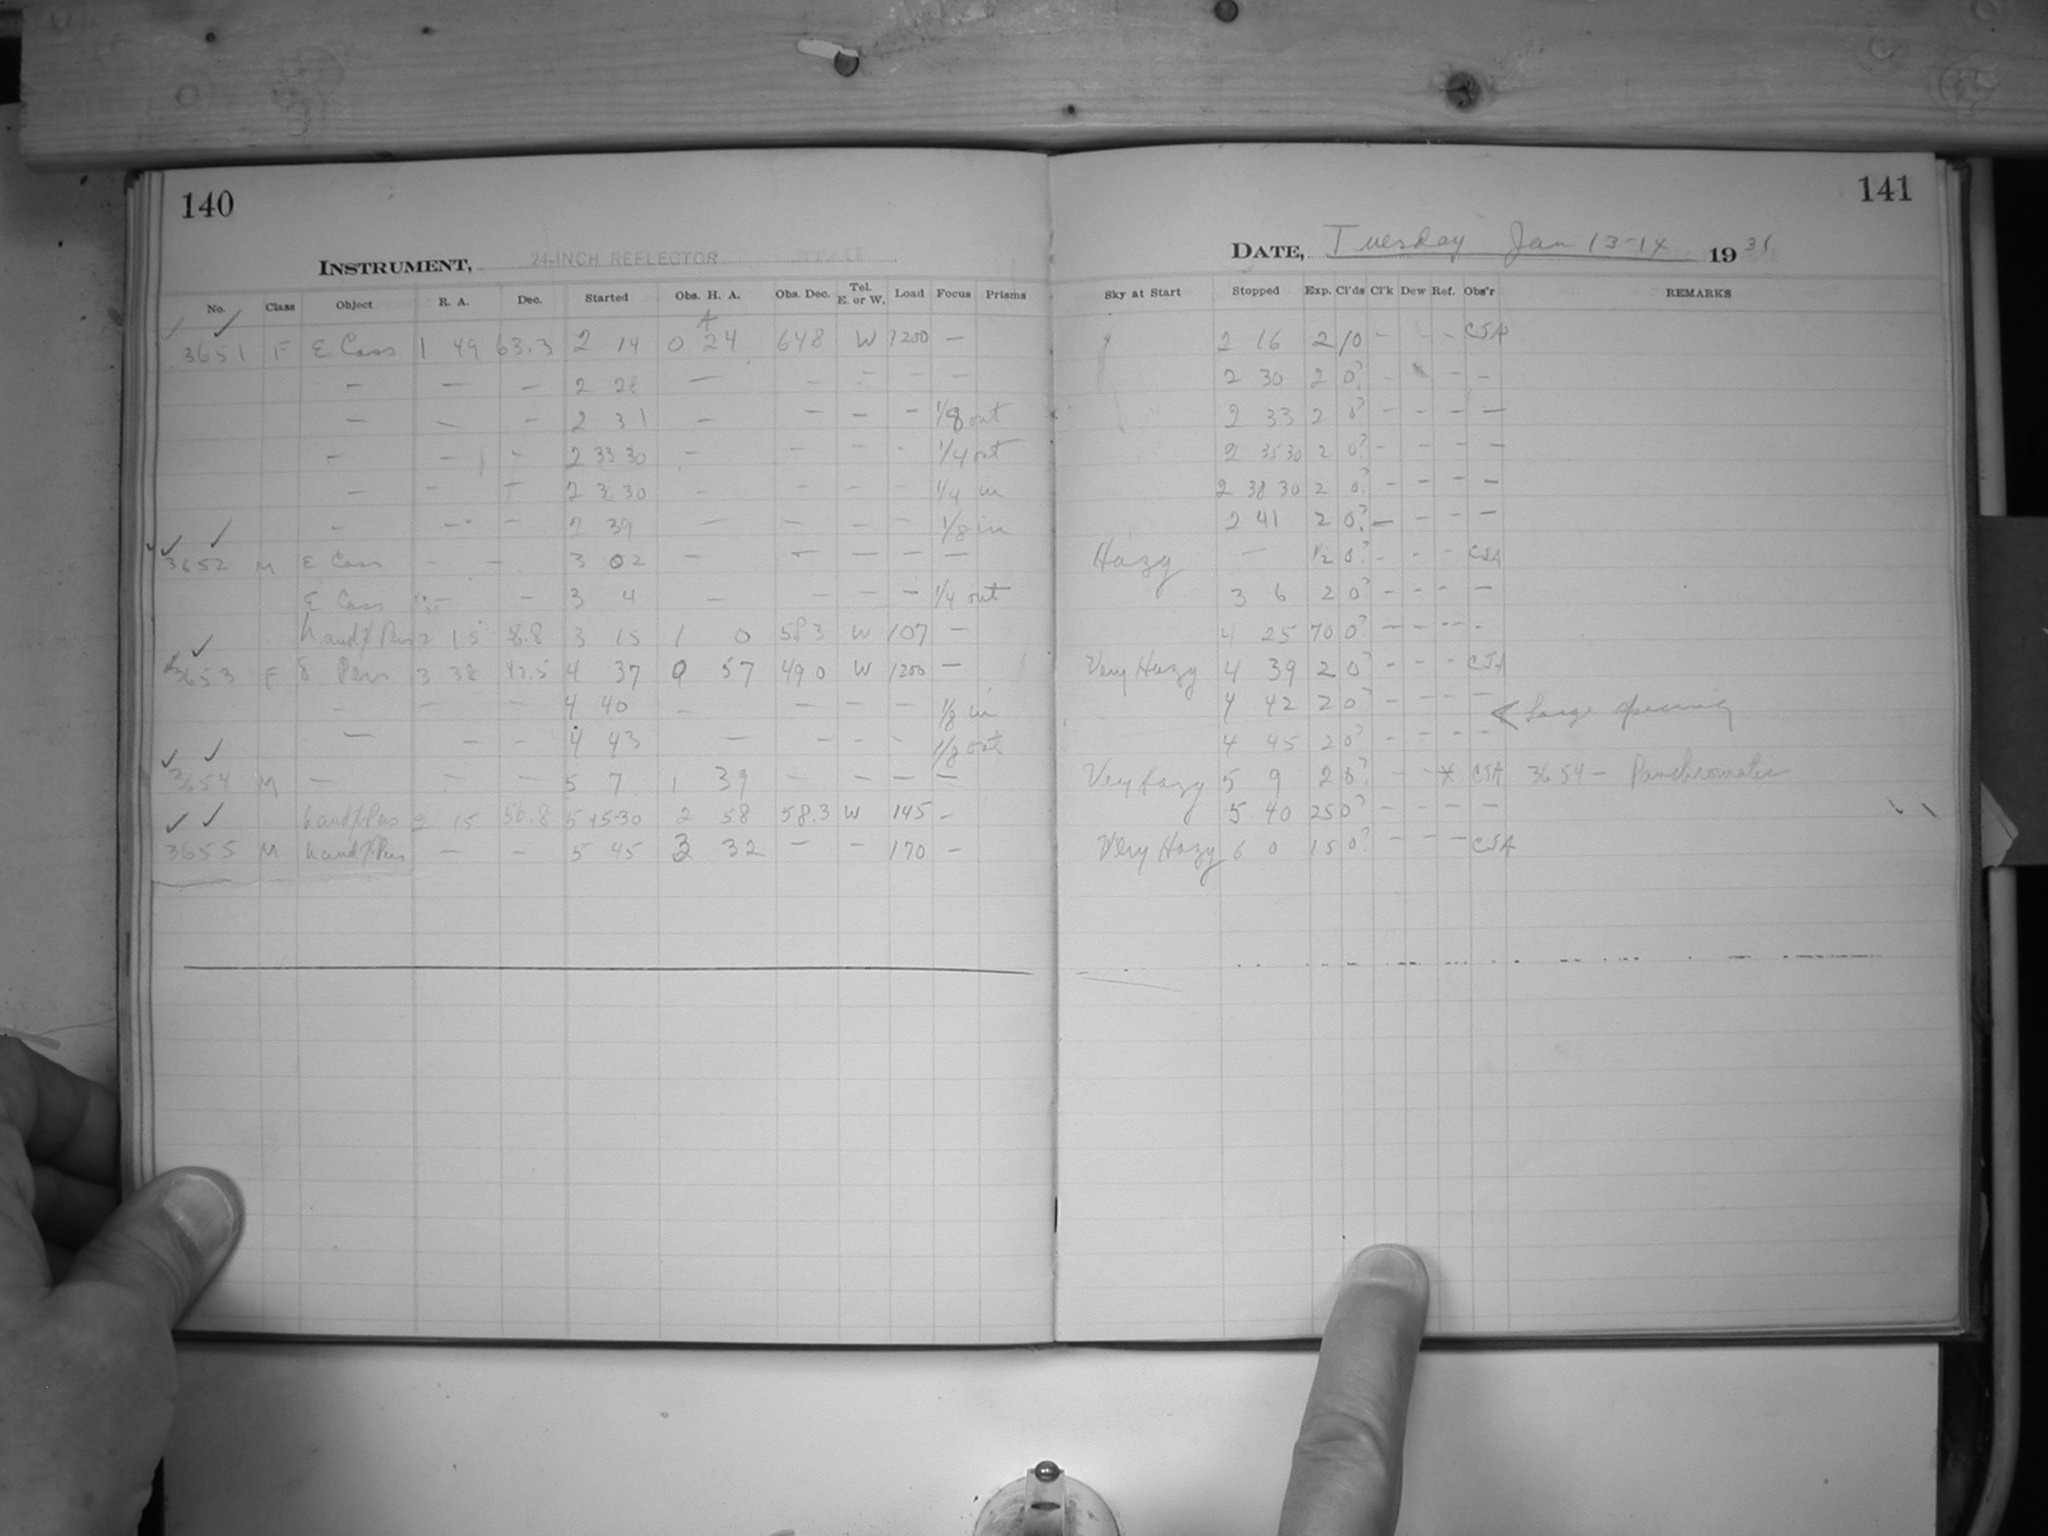 140
INSTRUMENT, 24-INCH REFLECTOR
No. Class Object R. A. Dec. Started Obs. H. A. Obs. Dec. Tel. E. or W. Load Focus Prisms
3651 F ε Cass 1 49 63.3 2 14 0 24 648 W 1200 —
— — — 2 28 — — — — —
— — — 2 31 — — — — 1/8 out
— — — 2 33 30 — — — — 1/4 out
— — — 2 3 30 — — — — 1/4 in
— — — 2 39 — — — — 1/8 in
3652 M ε Cass — — 3 02 — — — — —
ε Cass — — 3 4 — — — — 1/4 out
h and χ Pers 2 15 3 15 1 0 583 W 107 —
3653 F δ Pers 3 38 47.5 4 37 0 57 490 W 1200 —
— — — 4 40 — — — — 1/8 in
— — — 4 43 — — — — 1/8 out
3654 M — — — 5 7 1 39 — — — —
h and χ Pers 2 15 56.8 5 15-30 2 58 58.3 W 145 —
3655 M h and χ Pers — — 5 45 3 32 — — 170 —
141
DATE, Tuesday Jan 13-14 1931
Sky at Start Stopped Exp. Cl'ds Cl'k Dew Ref. Obs'r REMARKS
2 16 2 10 — — — CJA
2 30 2 0? — — —
2 33 2 0? — — — —
2 35 30 2 0? — — — —
2 38 30 2 0? — — — —
2 41 2 0? — — — —
Hazy — 1/2 0? — — — CJA
3 6 2 0? — — — —
4 25 70 0? — — — -
Very Hazy 4 39 2 0? — — — CJA
4 42 2 0? — — — — < Large opening
4 45 2 0? — — — —
Very Hazy 5 9 2 0? — — * CJA 3654 — Panchromatic
5 40 25 0? — — — —
Very Hazy 6 0 15 0? — — — CJA